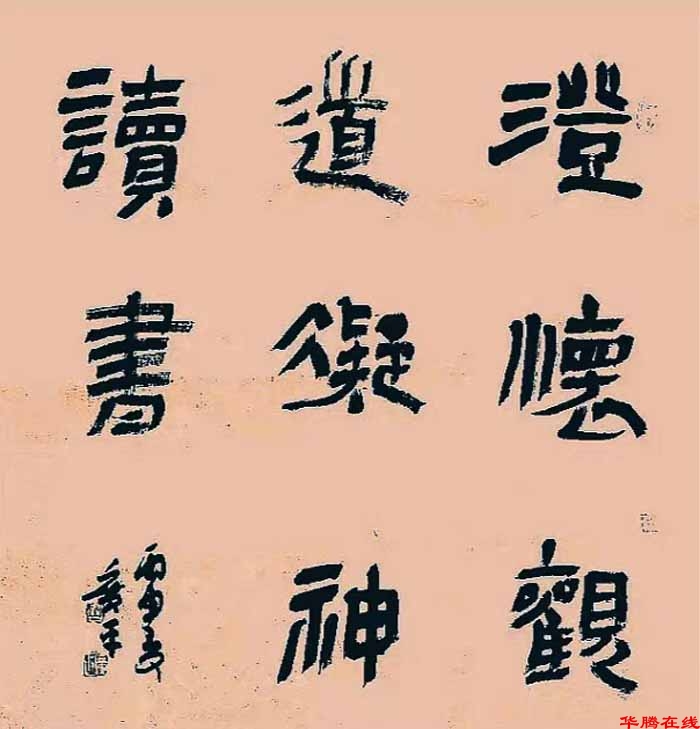 澄懷觀
道凝神
讀書
丙申夏
华腾在线